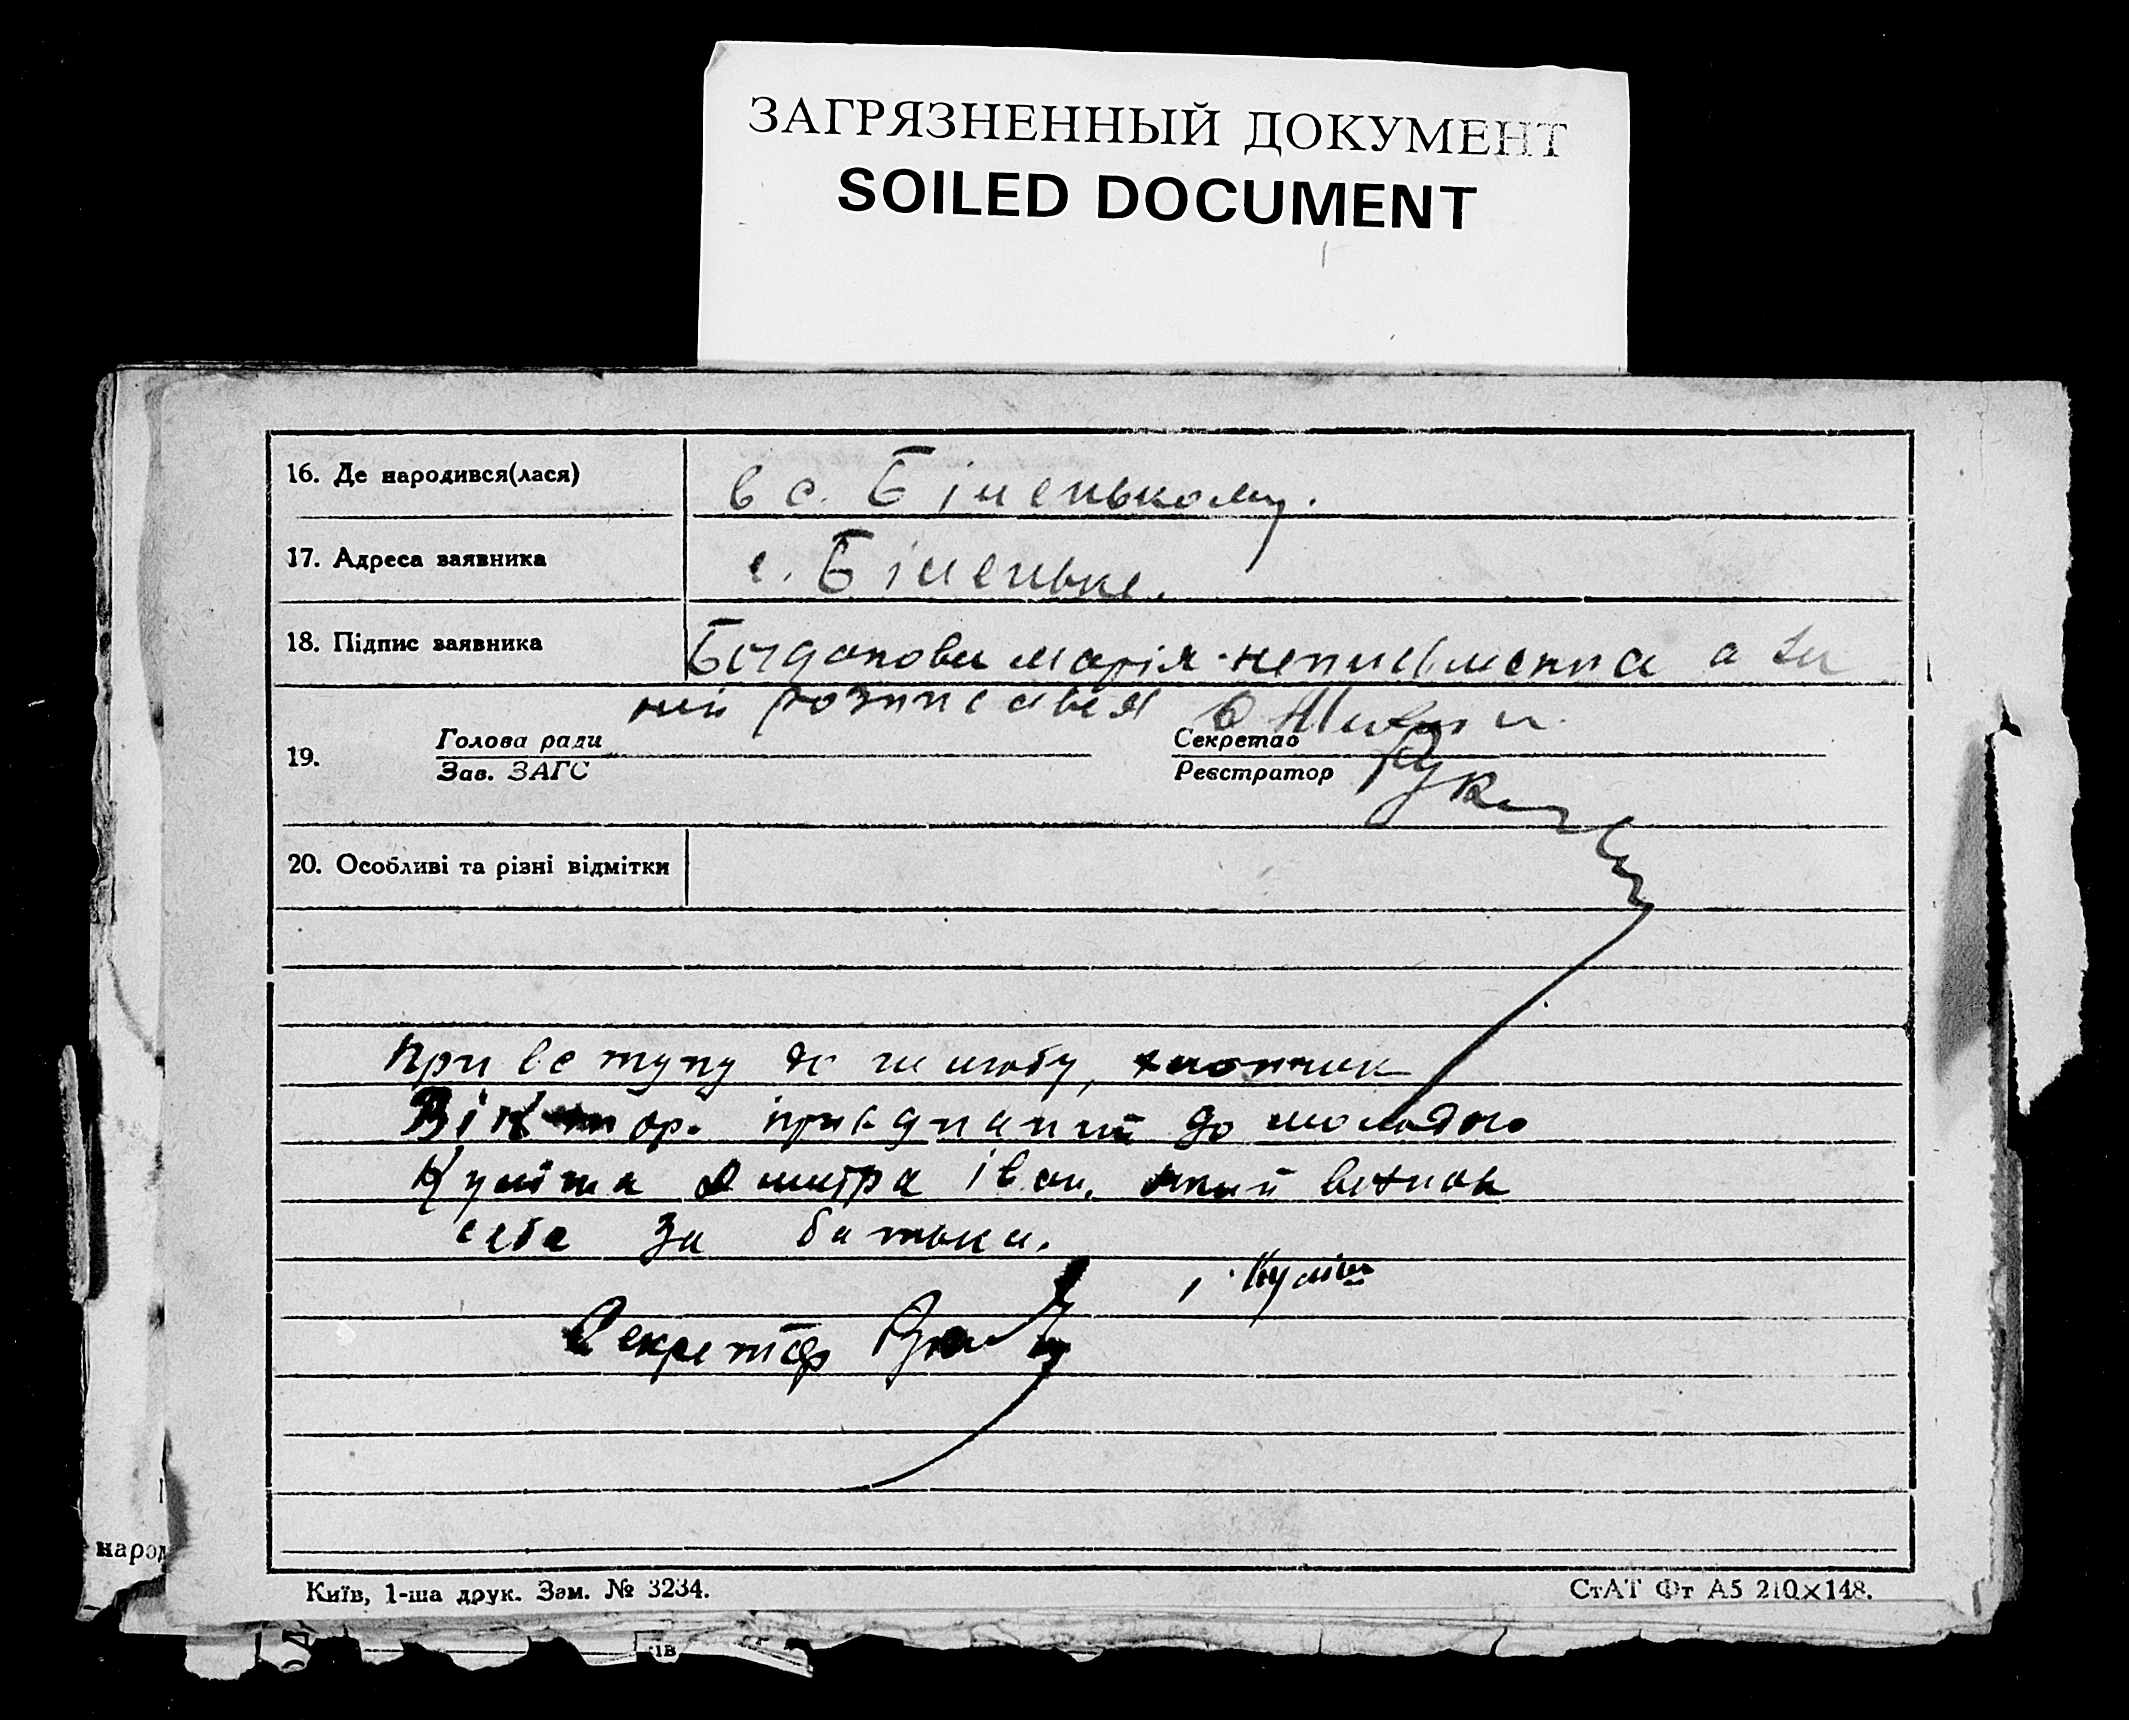 ЗАГРЯЗНЕННЫЙ ДОКУМЕНТ
SOILED DOCUMENT
16. Де народився(лася)
в с. Біленькому.
17. Адреса заявника
с. Біленьке.
18. Підпис заявника
Богданова марія - неписьменна а за
неї розписався
19.
Голова ради
Зав. ЗАГС
Секретар
Реєстратор
20. Особливі та різні відмітки
При вступу до шлюбу, хлопчик
Віктор. приєднаний до молодого
Куліша Дмитра Іван. який визнав
себе за батька.
Куліш
Секретар
народ
Київ, 1-ша друк. Зам. № 3234.
СтАТ Фт А5 210×148.
ів